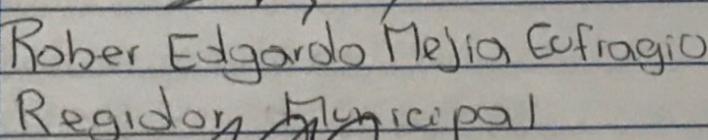 Rober Edgardo Mejia Eufragio
Regidor Municipal